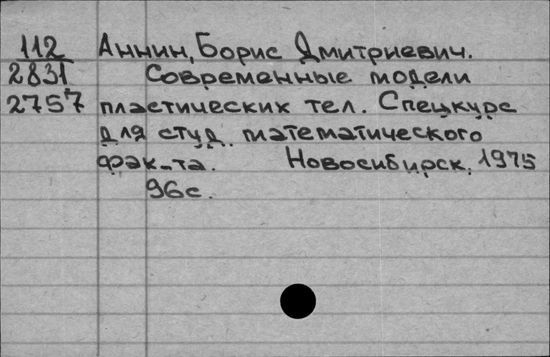 112 Аннин, Борис Дмитриевич.
2831 Современные модели
2757 пластических тел. Спецкурс
для студ. математического
фак-та. Новосибирск, 1975
96с.